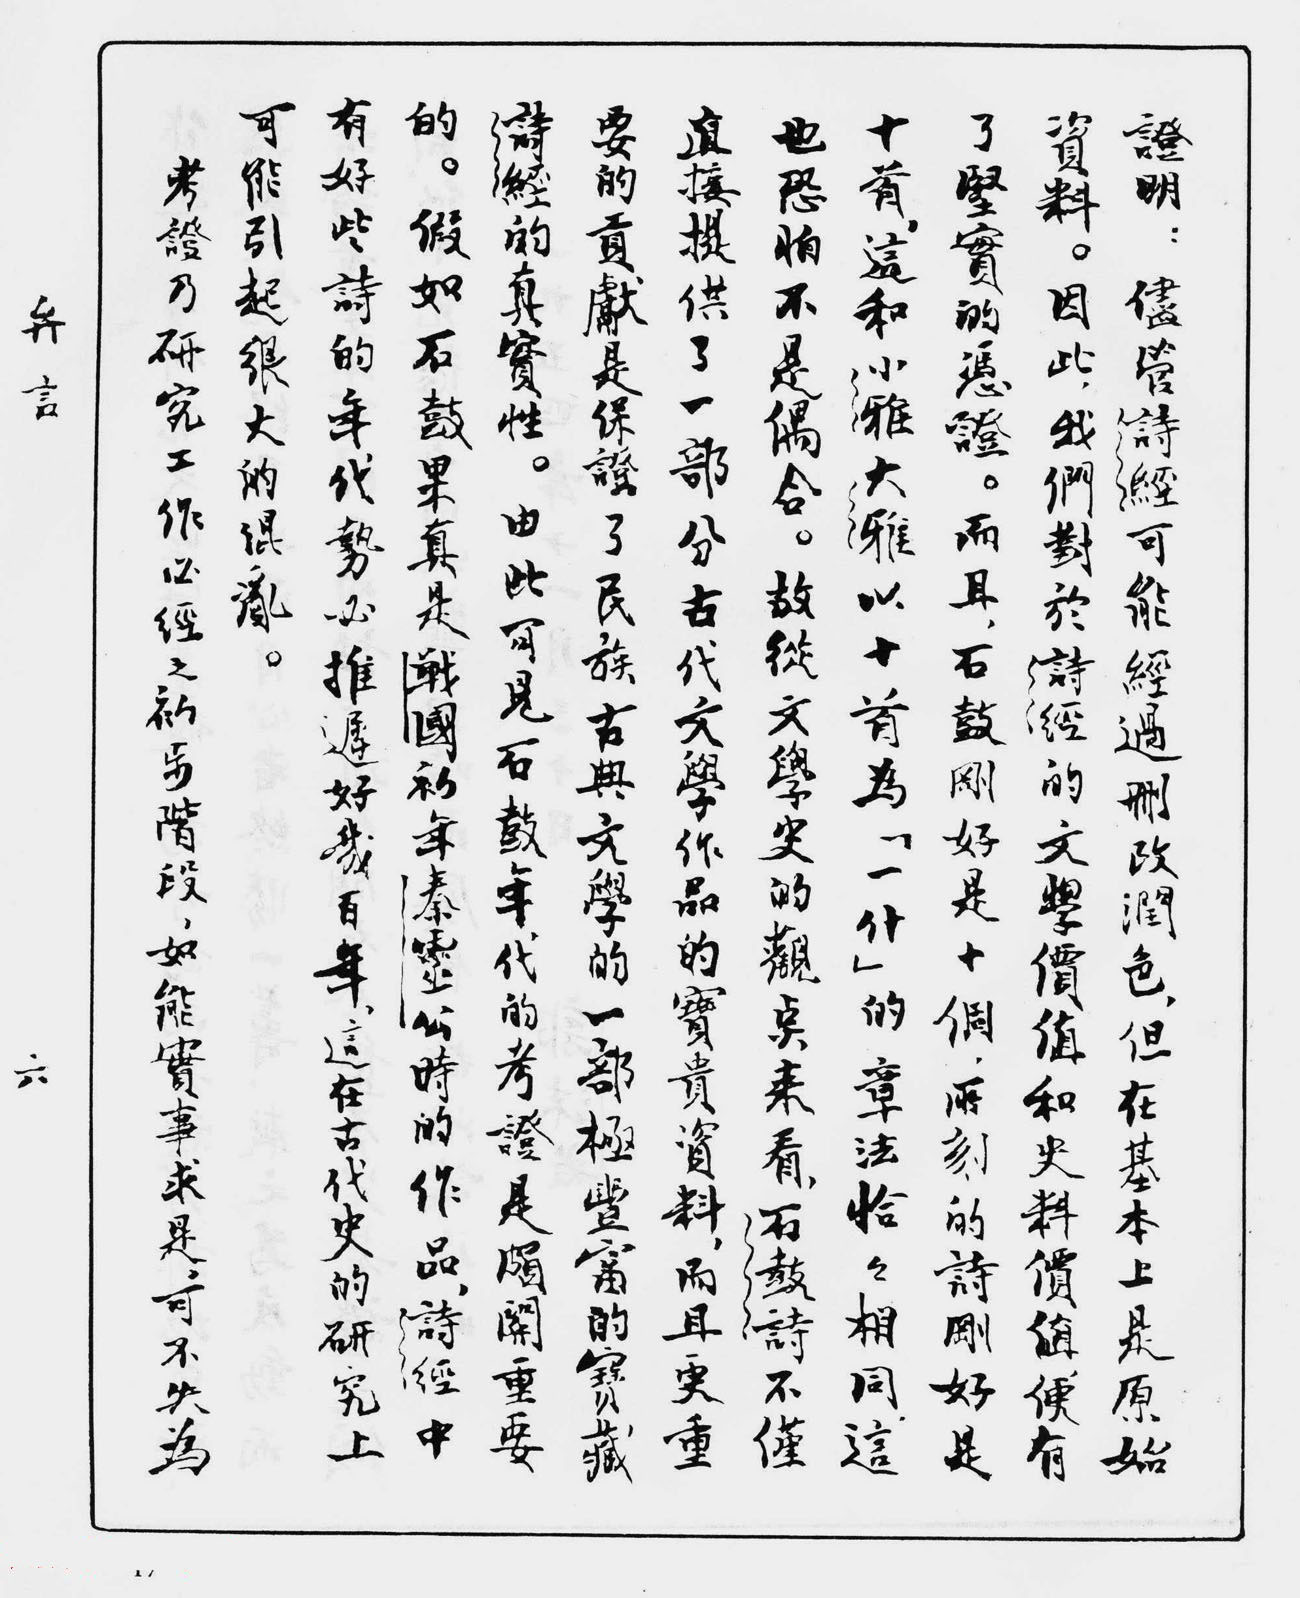 證明：儘管詩經可能經過刪改潤色，但在基本上是原始
資料。因此，我們對於詩經的文學價值和史料價值便有
了堅實的憑證。而且，石鼓剛好是十個，所刻的詩剛好是
十首，這和小雅大雅以十首為「一什」的章法恰々相同，這
也恐怕不是偶合。故從文學史的觀點來看，石鼓詩不僅
直接提供了一部分古代文學作品的寶貴資料，而且更重
要的貢獻是保證了民族古典文學的一部極豐富的寶藏
詩經的真實性。由此可見石鼓年代的考證是頗關重要
的。假如石鼓果真是戰國初年秦靈公時的作品，詩經中
有好些詩的年代勢必推遲好幾百年，這在古代史的研究上
可能引起很大的混亂。
考證乃研究工作必經之初步階段，如能實事求是，可不失為
弁言
六
17